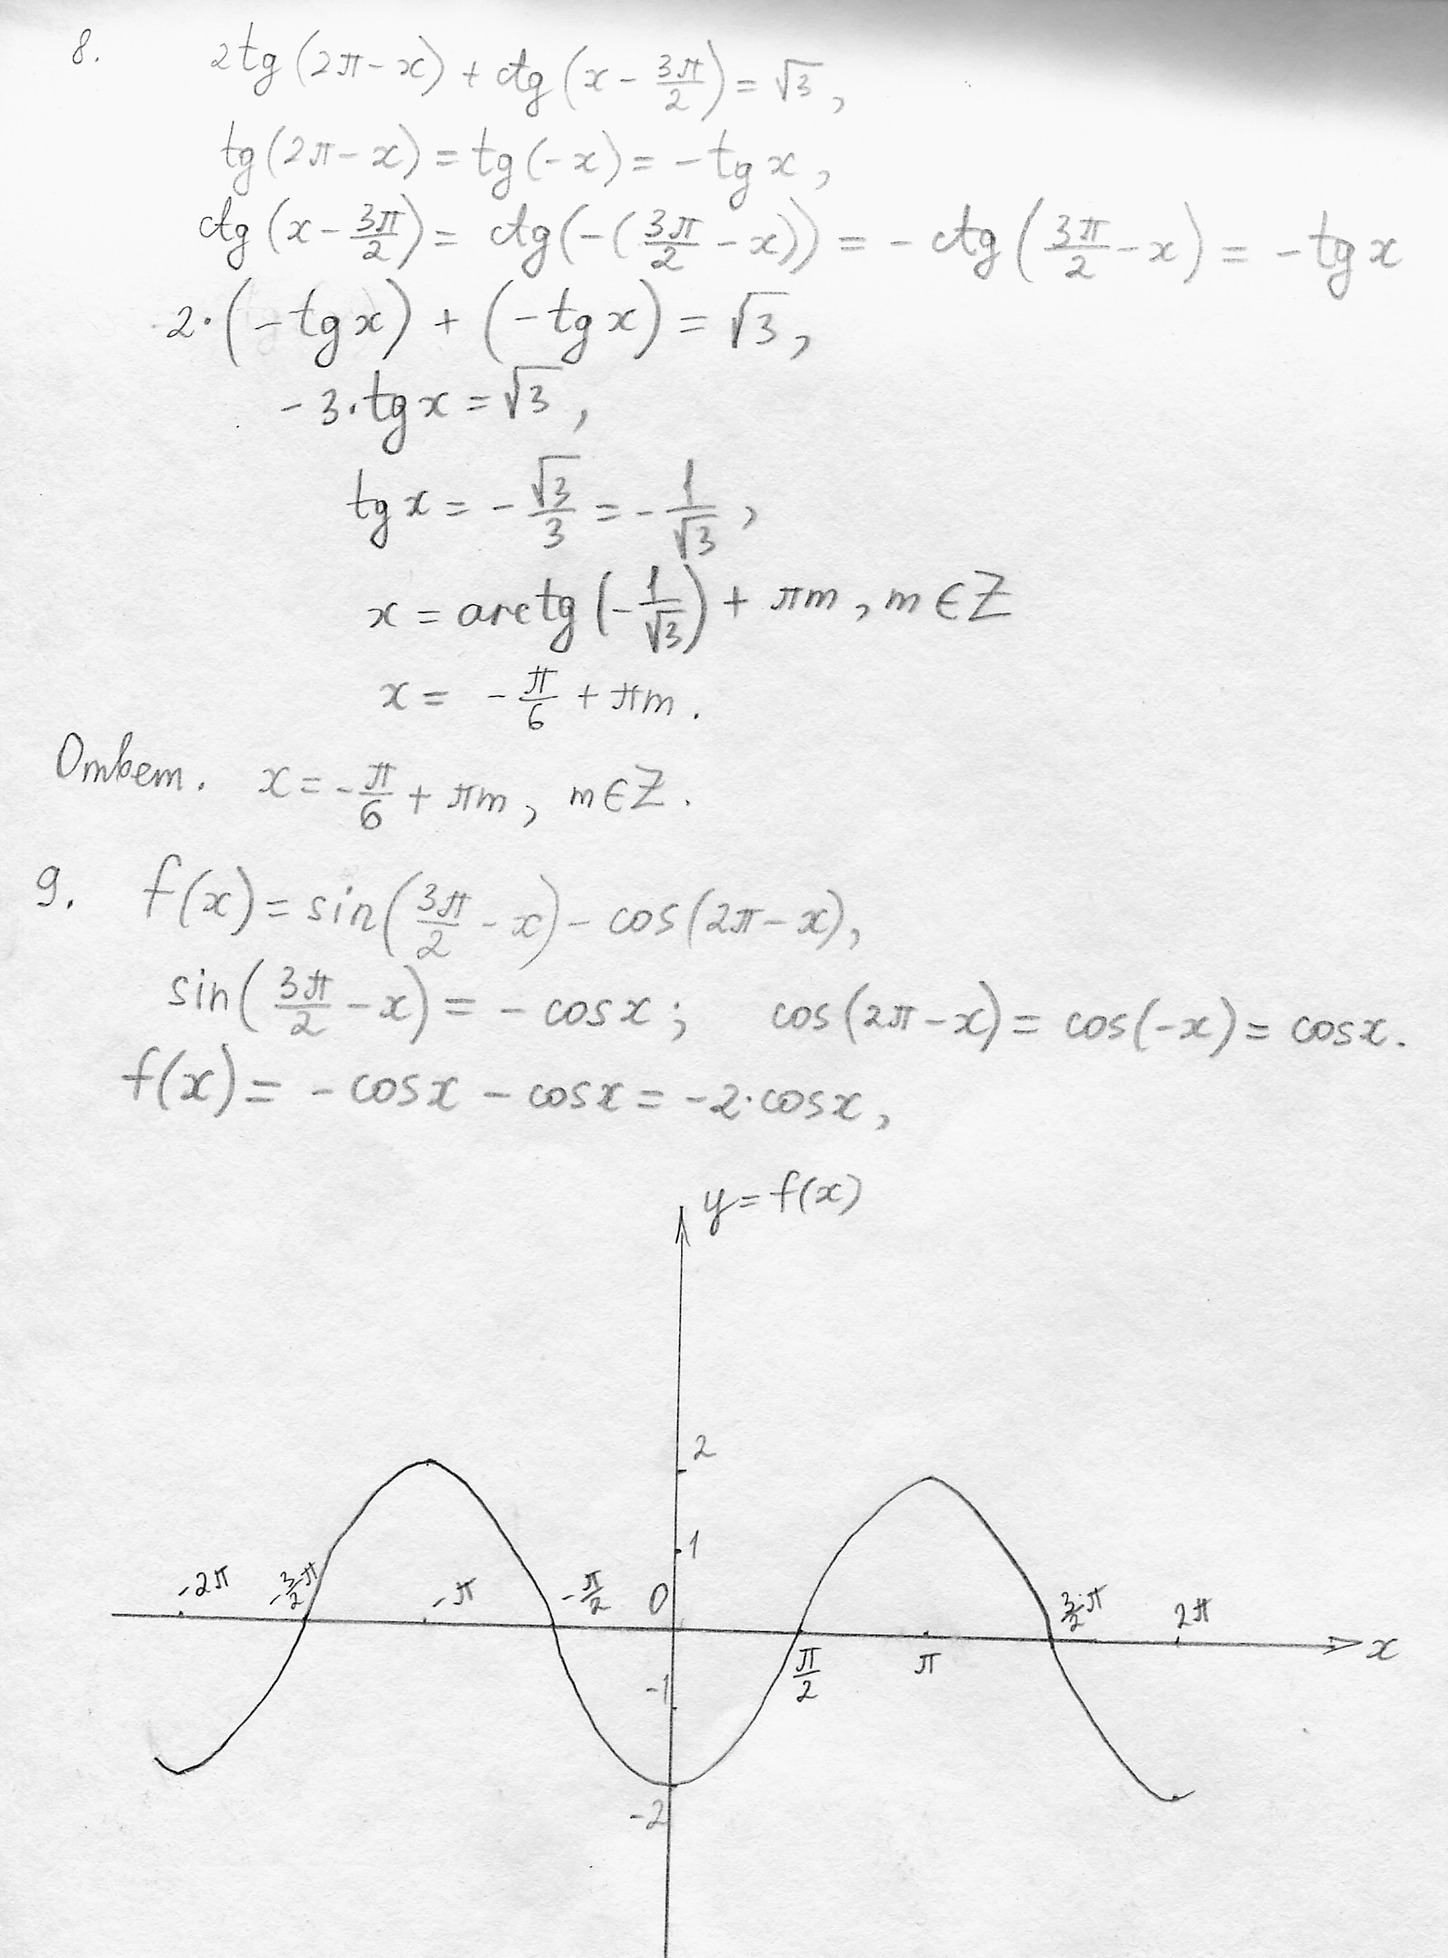 8. 2tg(2π-x) + ctg(x - 3π/2) = √3,
tg(2π-x) = tg(-x) = -tg x,
ctg(x - 3π/2) = ctg(-(3π/2 - x)) = - ctg(3π/2 - x) = -tg x
2·(-tg x) + (-tg x) = √3,
-3·tg x = √3,
tg x = - √3/3 = - 1/√3,
x = arctg(-1/√3) + πm, m ∈ Z
x = - π/6 + πm.
Ответ. x = - π/6 + πm, m ∈ Z.
9. f(x) = sin(3π/2 - x) - cos(2π-x),
sin(3π/2 - x) = - cos x; cos(2π-x) = cos(-x) = cos x.
f(x) = - cos x - cos x = -2·cos x,
y = f(x)
2
1
-2π -3/2·π -π -π/2 0 3/2·π 2π
π/2 π x
-1
-2